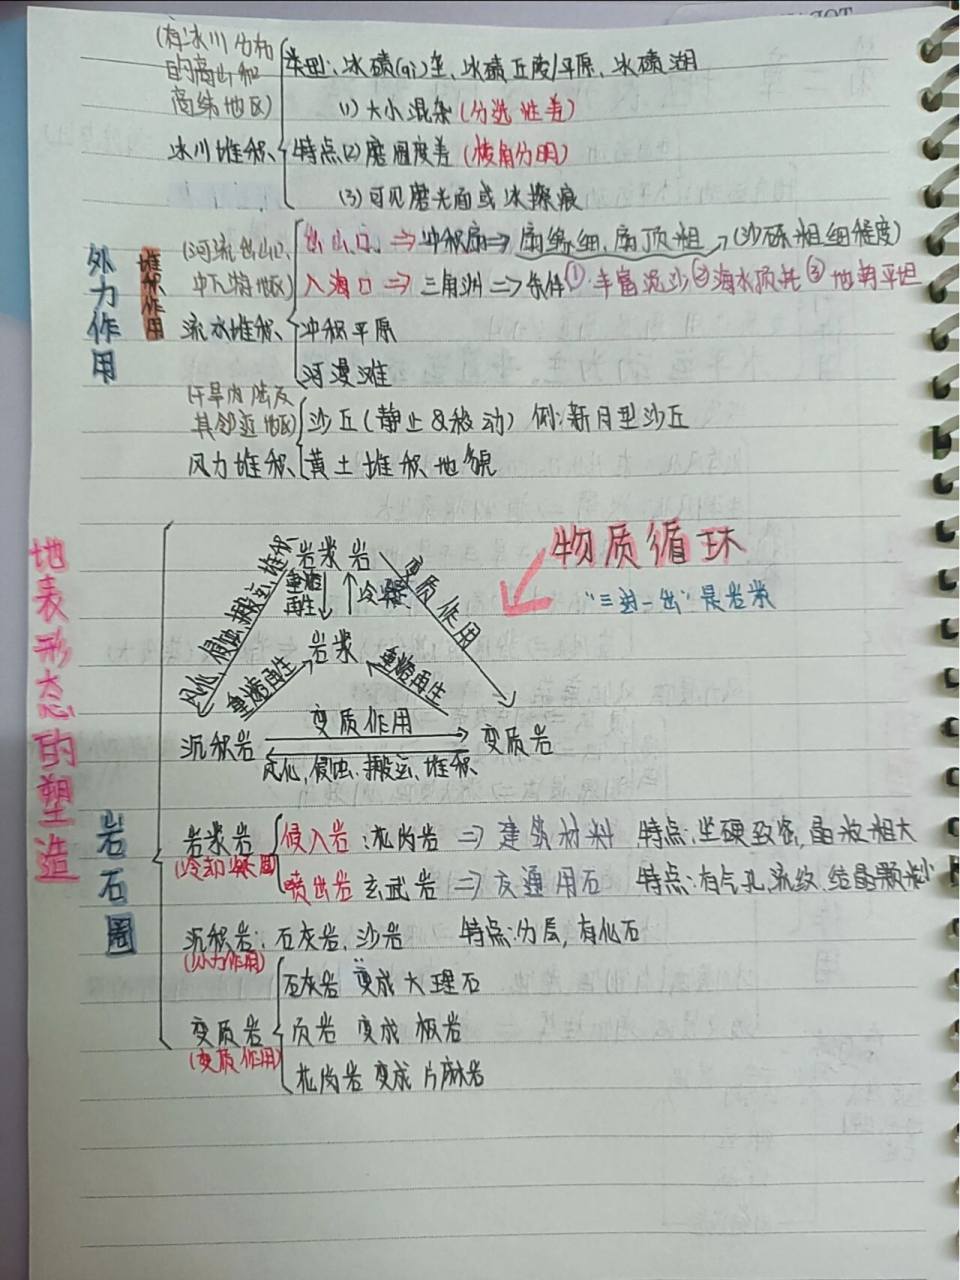 (有冰川分布
的高山和
高纬地区)
冰川堆积
类型:冰碛(qì)垄、冰碛丘陵/平原、冰碛湖
特点(1)大小混杂(分选性差)
(2)磨圆度差(棱角分明)
(3)可见磨光面或冰擦痕
外力作用
堆积作用
(河流出山口、
中下游地区)
流水堆积
出山口⇒冲积扇⇒扇缘细、扇顶粗→(沙砾粗细程度)
入海口⇒三角洲⇒条件①丰富泥沙②海水顶托③地势平坦
冲积平原
河漫滩
(干旱内陆及
其邻近地区)
风力堆积
沙丘(静止&移动) 例:新月型沙丘
黄土堆积地貌
地表形态的塑造
岩石圈
物质循环
"三进一出"是岩浆
岩浆岩
风化、侵蚀、搬运、堆积
重熔
再生
冷凝
变质作用
岩浆
重熔再生
重熔再生
沉积岩
变质作用
变质岩
风化、侵蚀、搬运、堆积
岩浆岩
(冷却凝固)
侵入岩:花岗岩⇒建筑材料 特点:坚硬致密,晶粒粗大
喷出岩 玄武岩⇒交通用石 特点:有气孔,流纹,结晶颗粒小
沉积岩:石灰岩、沙岩 特点:分层,有化石
(外力作用)
变质岩
(变质作用)
石灰岩 变成大理石
页岩 变成 板岩
花岗岩 变成片麻岩